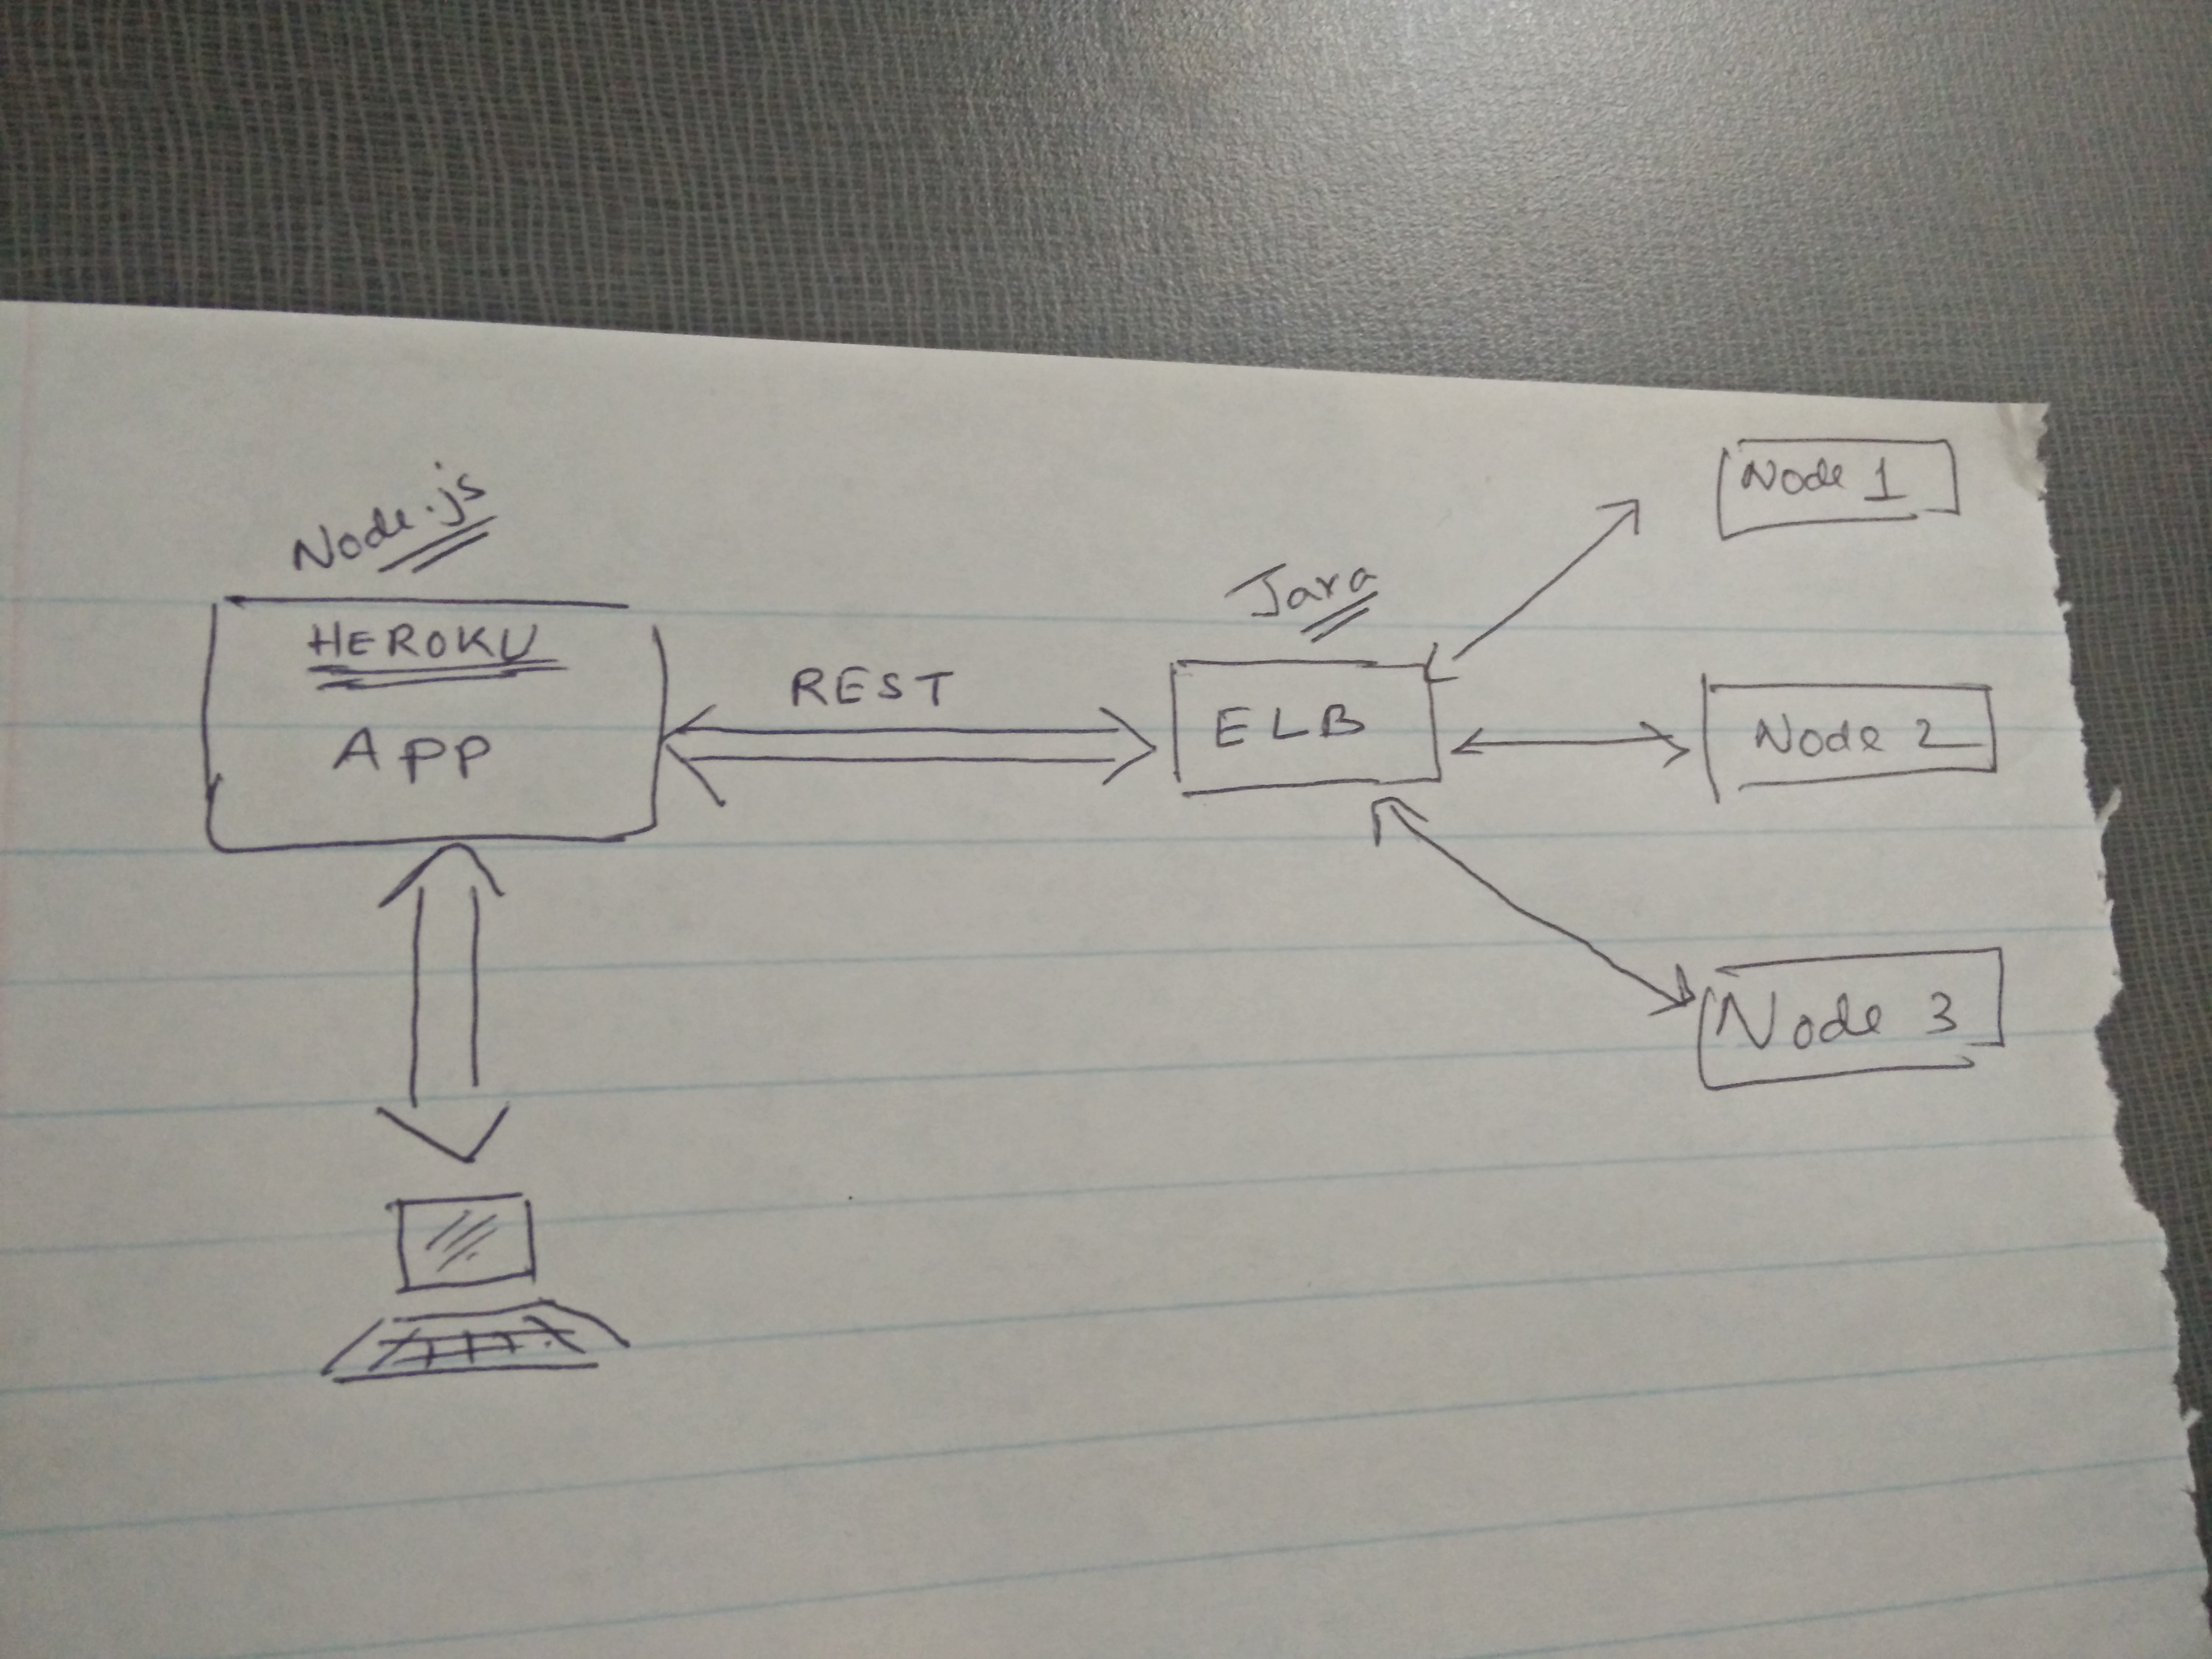 Node.js
HEROKU
App
REST
Java
ELB
Node 1
Node 2
Node 3